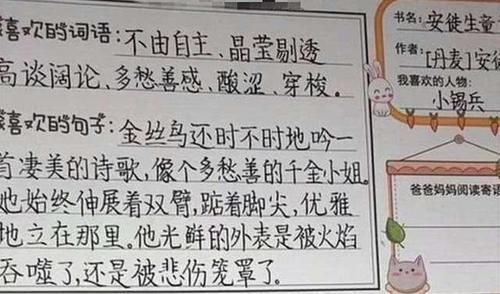 喜欢的词语:不由自主、晶莹剔透
高谈阔论、多愁善感、酸涩、穿梭。
喜欢的句子:金丝鸟还时不时地吟一
首凄美的诗歌,像个多愁善的千金小姐。
她始终伸展着双臂,踮着脚尖,优雅
地立在那里。他光鲜的外表是被火焰
吞噬了,还是被悲伤笼罩了。
书名:安徒生童
作者:[丹麦]安徒
我喜欢的人物:
小锡兵
爸爸妈妈阅读寄语